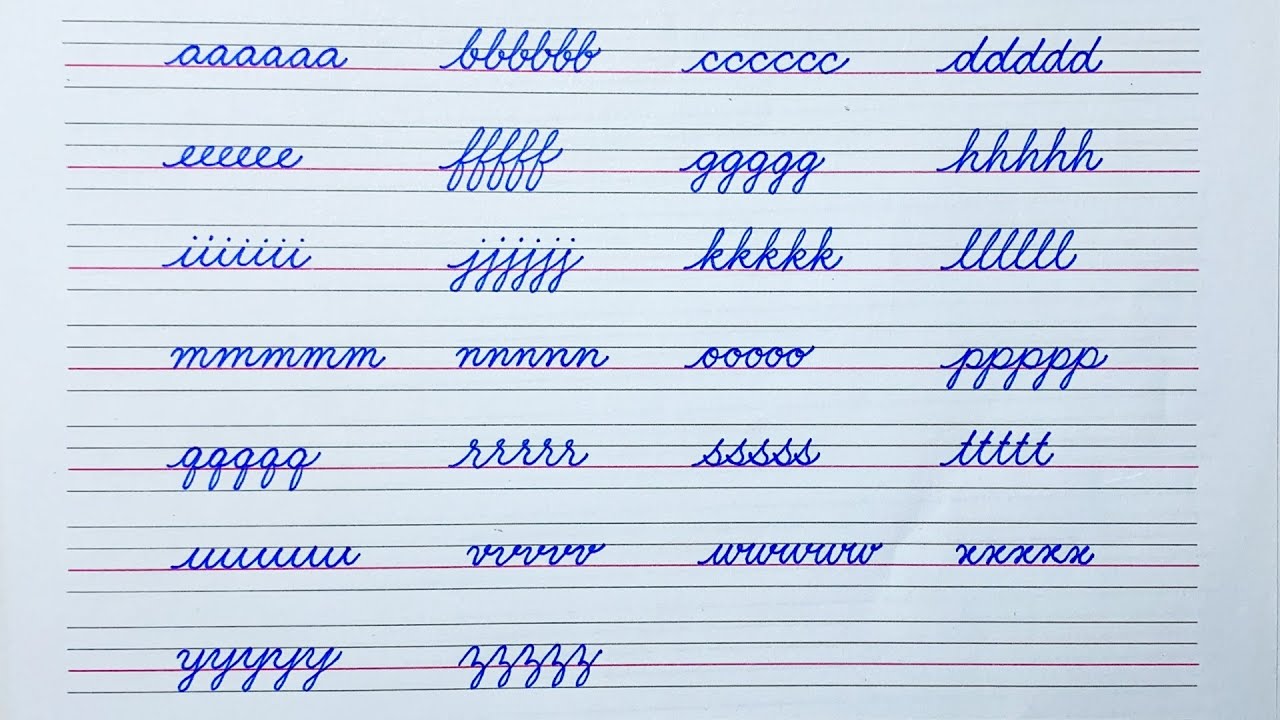 aaaaaa bbbbbb cccccc ddddd
eeeeee fffff ggggg hhhhh
iiiiii jjjjjj kkkkk llllll
mmmmm nnnnn ooooo ppppp
qqqqq rrrrr sssss ttttt
uuuuu vvvvv wwwww xxxxx
yyyyy zzzzz